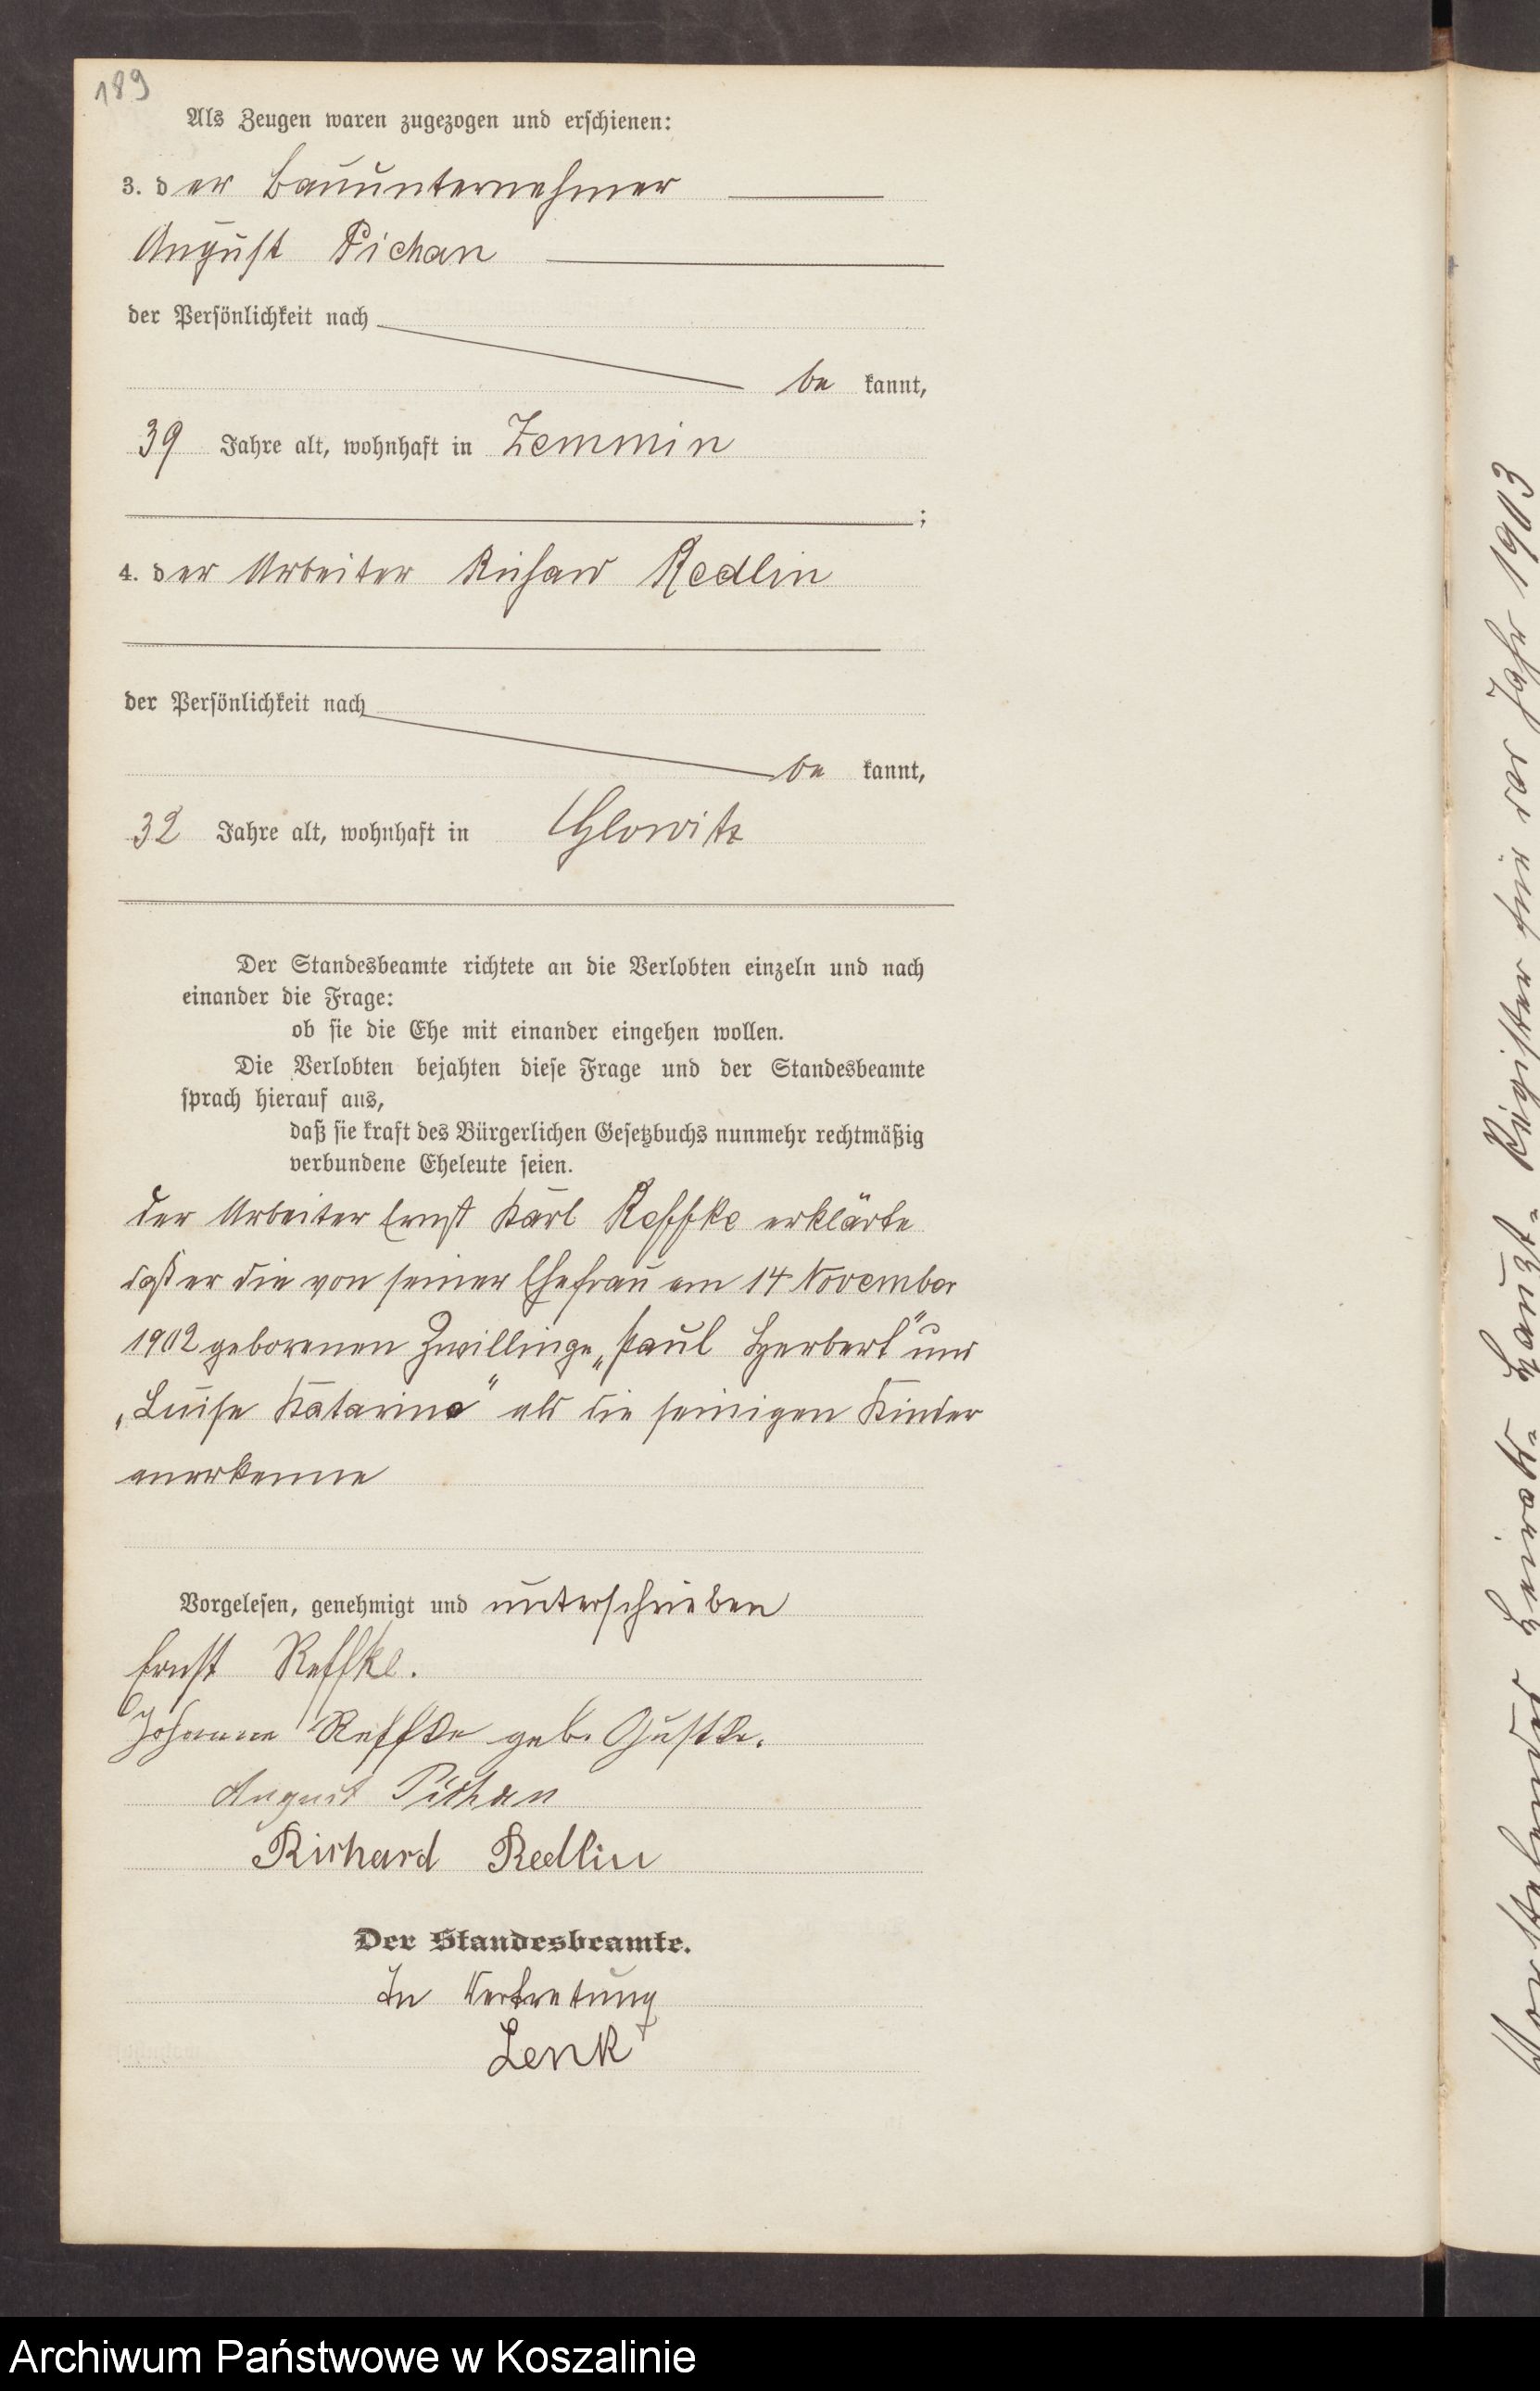 189
Als Zeugen waren zugezogen und erschienen:
3. der Bauunternehmer
August Pichan
der Persönlichkeit nach
be kannt,
39 Jahre alt, wohnhaft in Zemmin
;
4. der Arbeiter Richard Redlin
der Persönlichkeit nach
be kannt,
32 Jahre alt, wohnhaft in Glowitz
Der Standesbeamte richtete an die Verlobten einzeln und nach
einander die Frage:
ob sie die Ehe mit einander eingehen wollen.
Die Verlobten bejahten diese Frage und der Standesbeamte
sprach hierauf aus,
daß sie kraft des Bürgerlichen Gesetzbuchs nunmehr rechtmäßig
verbundene Eheleute seien.
Der Arbeiter Ernst Karl Reffke erklärte
daß er die von seiner Ehefrau am 14 November
1902 geborenen Zwillinge „Paul Herbert" und
„Luise Katarina" als die seinigen Kinder
anerkenne
Vorgelesen, genehmigt und unterschrieben
Ernst Reffke.
Johanne Reffke geb. Gustke.
August Pichan
Richard Redlin
Der Standesbeamte.
In Vertretung
Lenk
Vorstehendes Heirats- Haupt- Register für das Jahr 1903
Archiwum Państwowe w Koszalinie